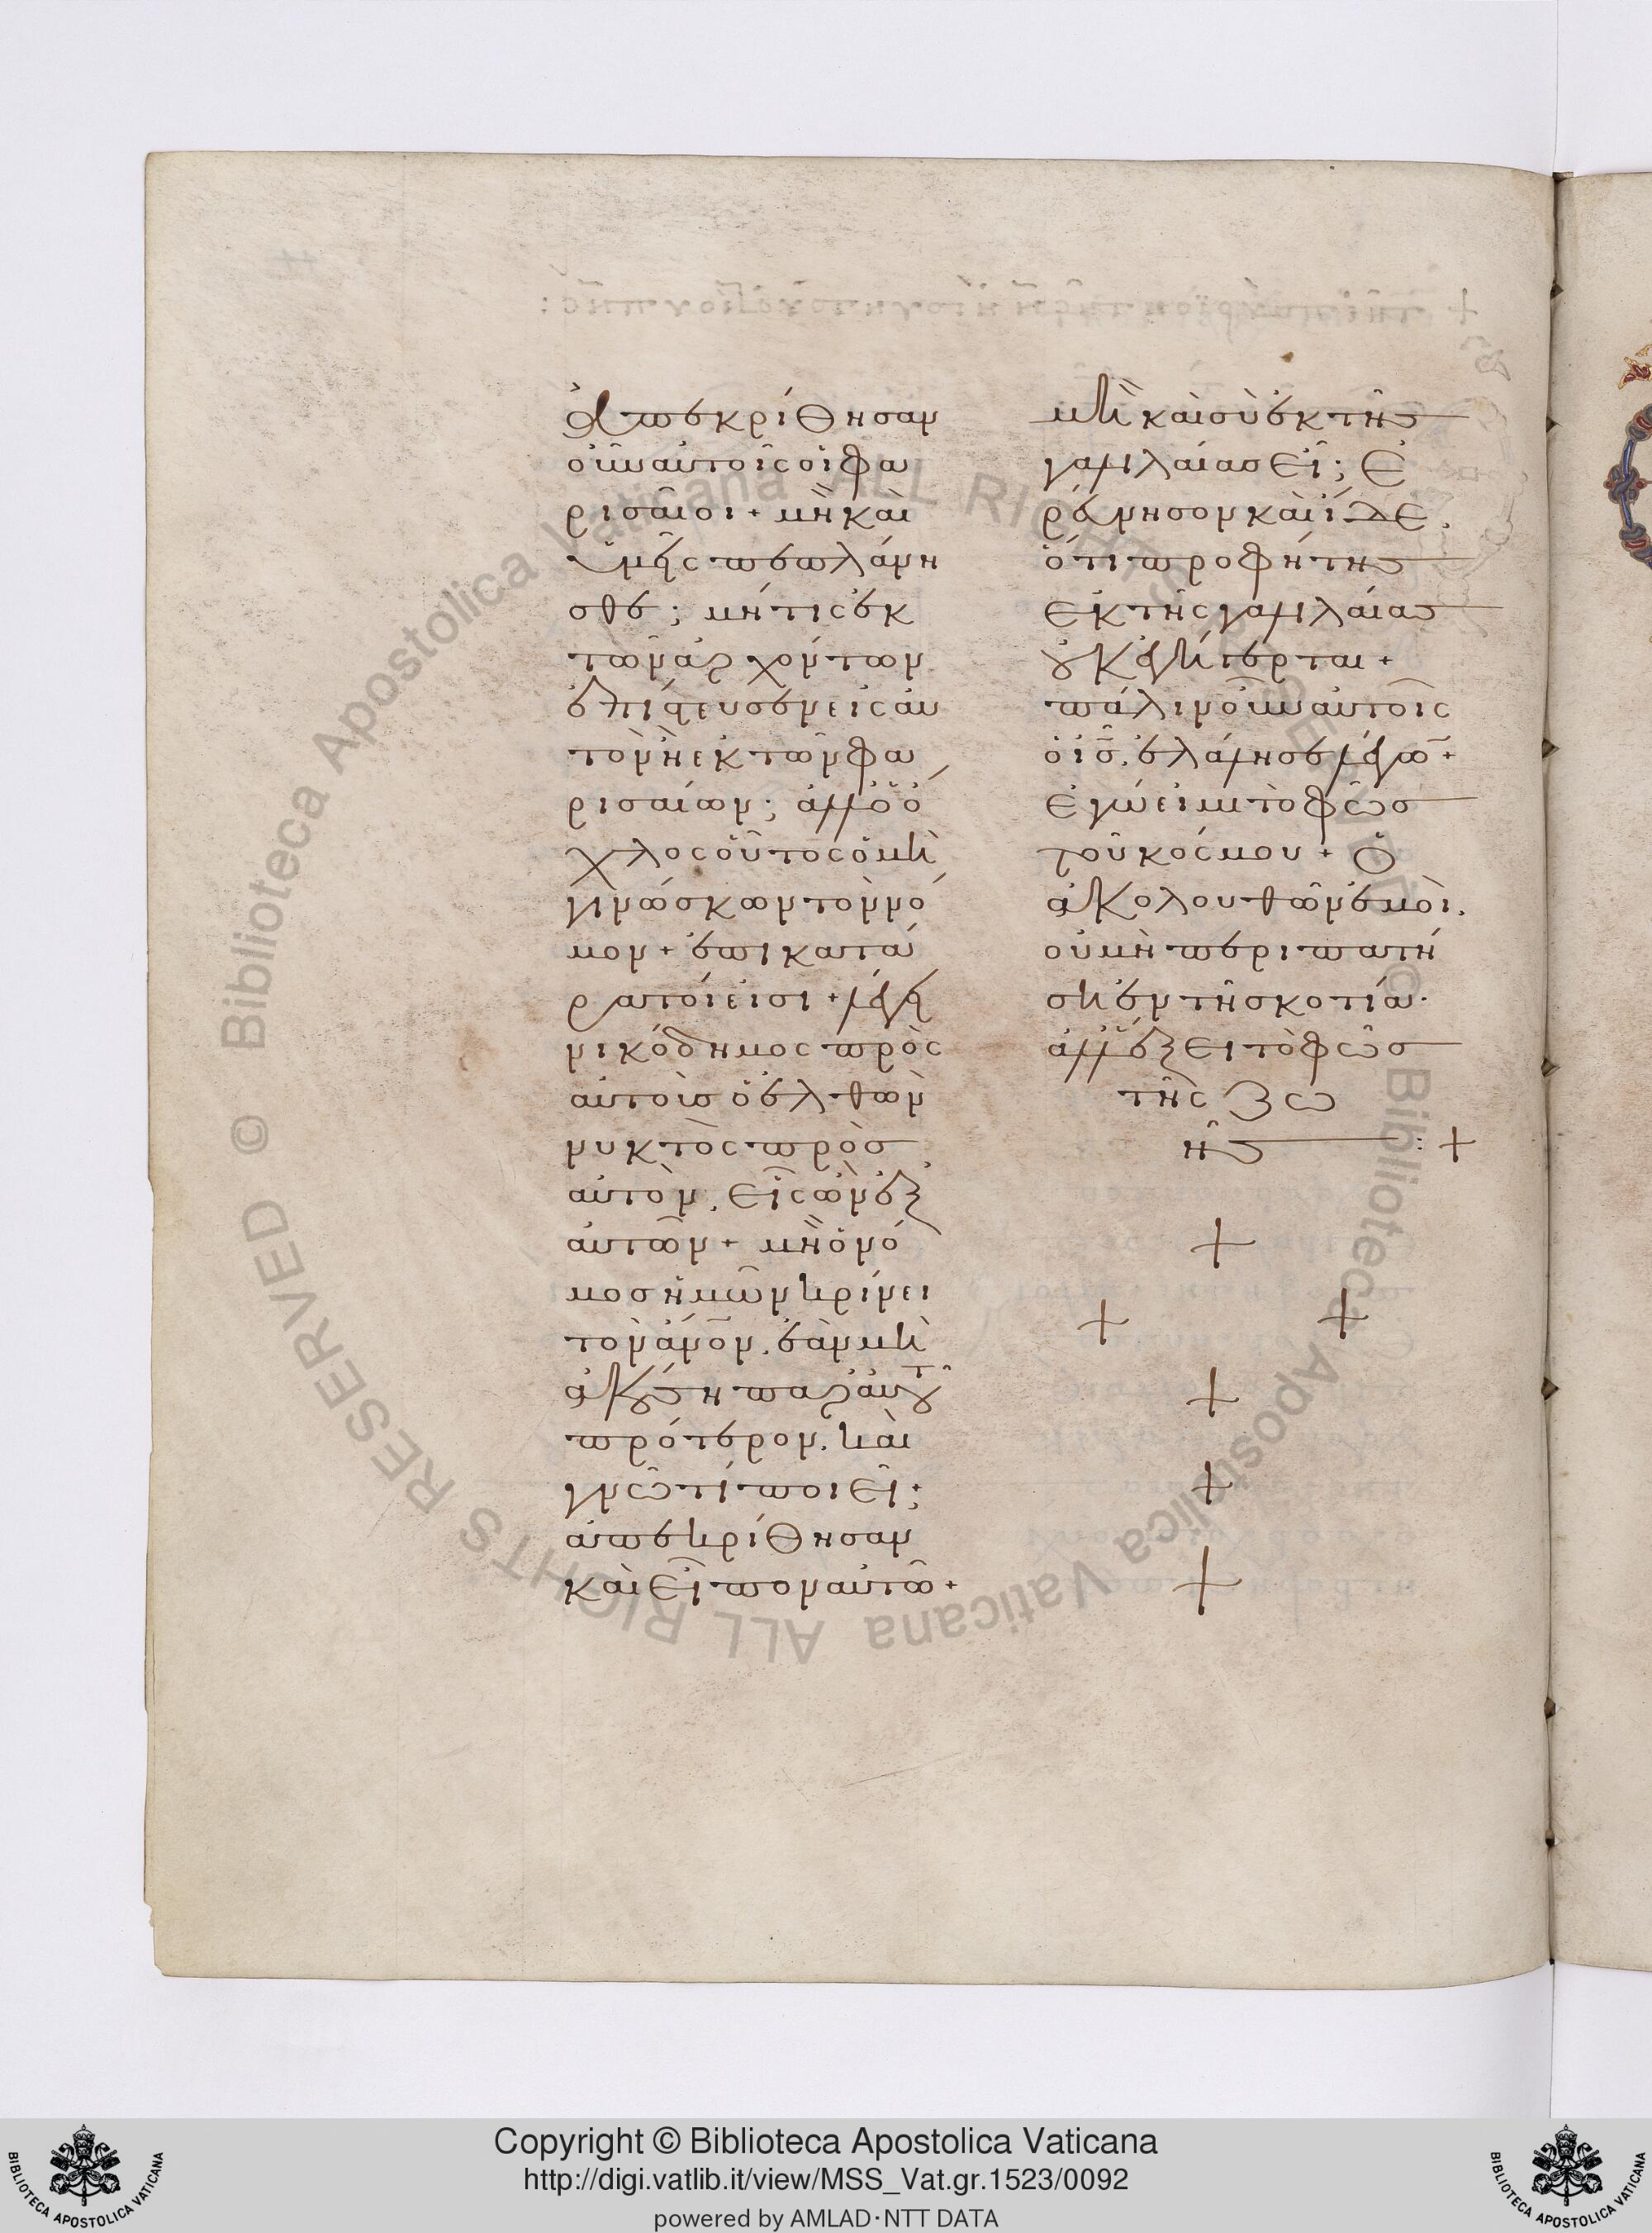 ἀπεκρίθησαν
οὖν αὐτοῖς οἱ φα
ρισαῖοι + μὴ καὶ
ὑμεῖς πεπλάνη
σθε; μήτις ἐκ
τῶν ἀρχόντων
ἐπίστευσεν εἰς αὐ
τὸν ἢ ἐκ τῶν φα
ρισαίων; ἀλλ' ὁ ὄ
χλος οὗτος ὁ μὴ
γινώσκων τὸν νό
μον + ἐπικατά
ρατοί εἰσι + λέγει
νικόδημος πρὸς
αὐτοὺς ὁ ἐλθὼν
νυκτὸς πρὸς
αὐτὸν, εἷς ὢν ἐξ
αὐτῶν + μὴ ὁ νό
μος ἡμῶν κρίνει
τὸν ἄνον, ἐὰν μὴ
ἀκούση παρ' αὐτοῦ
πρότερον, καὶ
γνῶ τί ποιεῖ;
ἀπεκρίθησαν
καὶ εἶπον αὐτῶ +
μὴ καὶ σὺ ἐκ τῆς
γαλιλαίας εἶ; ἐ
ρεύνησον καὶ ἴδε,
ὅτι προφήτης
ἐκ τῆς γαλιλαίας
οὐκ ἐγήγερται +
πάλιν οὖν αὐτοῖς
ὁ ις, ἐλάλησε λέγω +
ἐγώ εἰμι τὸ φῶς
τοῦ κόσμου + ὁ
ἀκολουθῶν ἐμοὶ,
οὐ μὴ περιπατή
ση ἐν τῆ σκοτία·
ἀλλ' ἕξει τὸ φῶς
τῆς ζω
ῆς : +
+
+ +
+
+
+
Copyright © Biblioteca Apostolica Vaticana
http://digi.vatlib.it/view/MSS_Vat.gr.1523/0092
powered by AMLAD·NTT DATA
BIBLIOTECA APOSTOLICA VATICANA
BIBLIOTECA APOSTOLICA VATICANA
© Biblioteca Apostolica Vaticana ALL RIGHTS RESERVED © Biblioteca Apostolica Vaticana ALL RIGHTS RESERVED